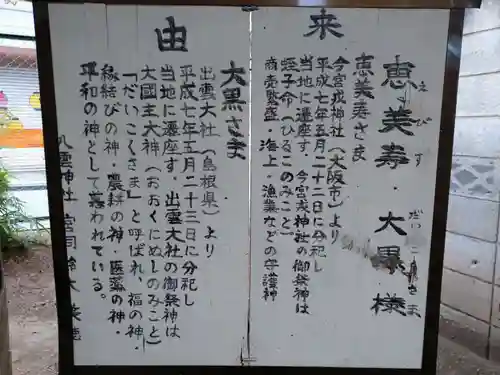 来由
恵美寿・大黒様
えびす だいこくさま
恵美寿さま
今宮戎神社(大阪市)より
平成七年五月二十二日に分祀し
当地に遷座す。今宮戎神社の御祭神は
蛭子命(ひるこのみこと)
商売繁盛・海上・漁業などの守護神
大黒さま
出雲大社(島根県)より
平成七年五月二十三日に分祀し
当地に遷座す。出雲大社の御祭神は
大國主大神(おおくにぬしのみこと)
「だいこくさま」と呼ばれ、福の神・
縁結びの神・農耕の神・医薬の神・
平和の神として慕われている。
八雲神社 宮司 鈴木